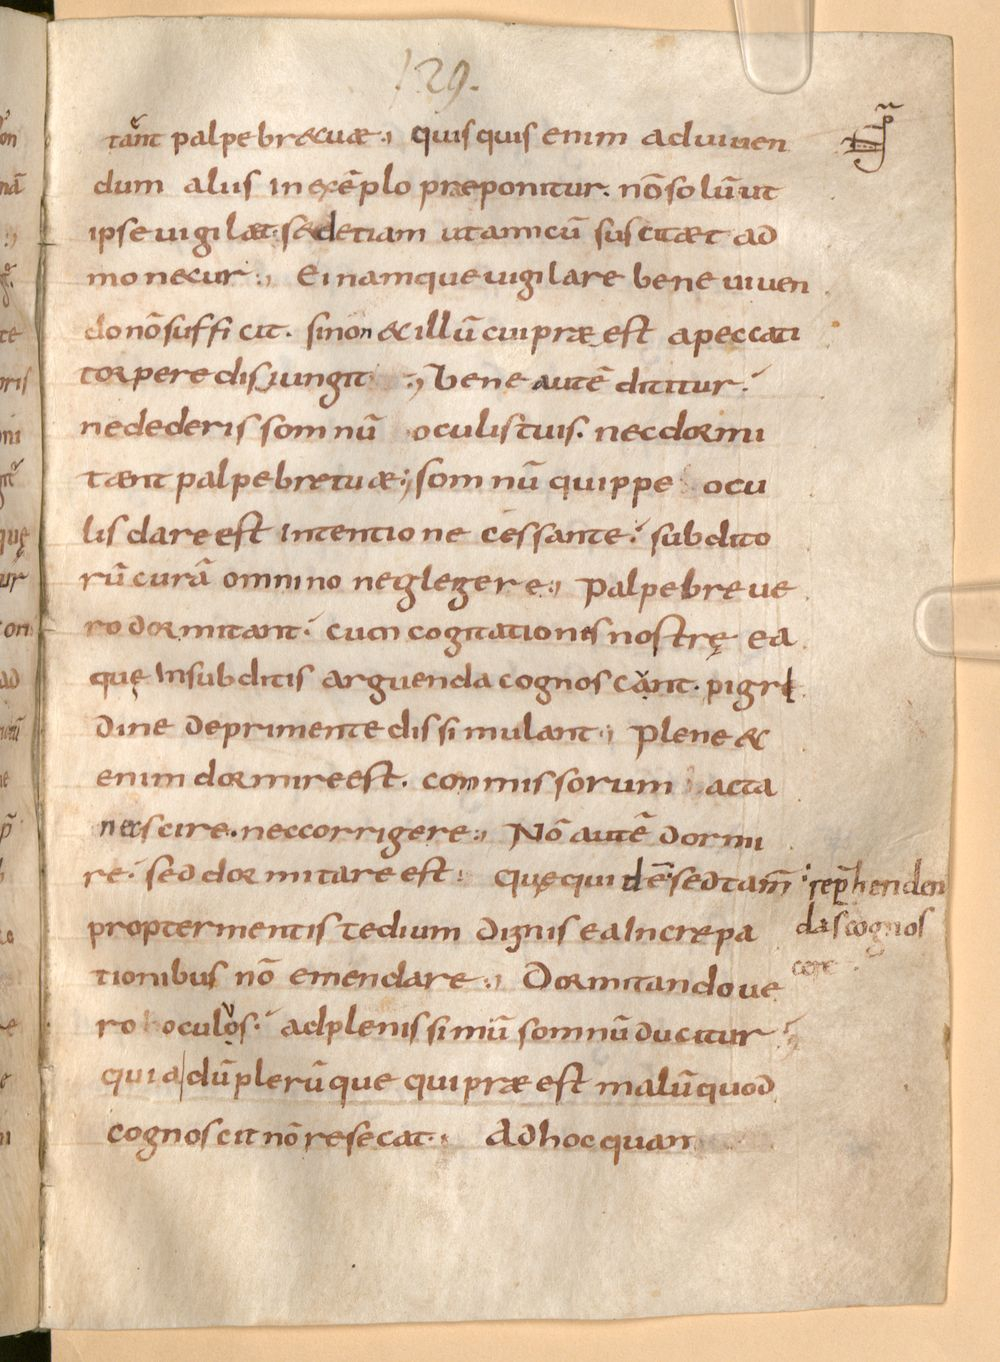 129.
tant palpebr&uæ. Quisquis enim aduiuen
dum aliis in exēplo præponitur. nōsolūut
ipse uigilæt. s&detiam utamicū suscitæt ad
mon&ur. Einamque uigilare bene uiuen
do nōsufficit. sinon &illū cui præest apeccati
torpere disiungit. Bene autē dicitur.
nedederis somnū oculistuis. nec dormi
tænt palpebretuæ. somnū quippe ocu
lis dare est intentione cessante. subdito
rū curā omnino neglegere. Palpebre ue
ro dormitant. cum cogitationes nostrę ea
quę insubditis arguenda cognoscant. pigri
dine deprimente dissimulant. Plene &
enim dormire est. commissorum acta
nec scire. nec corrigere. Nō autē dormi
re. sed dormitare est. quęquidē sed tam̄ reprhenden
das cognos
cere
propter mentis tedium dignis ea increpa
tionibus nō emendare. Dormitando ue
ro oculos. adplenissimū somnū ducitur
quia dū plerūque qui præest malū quod
cognoscit nō resecat. Adhoc quan